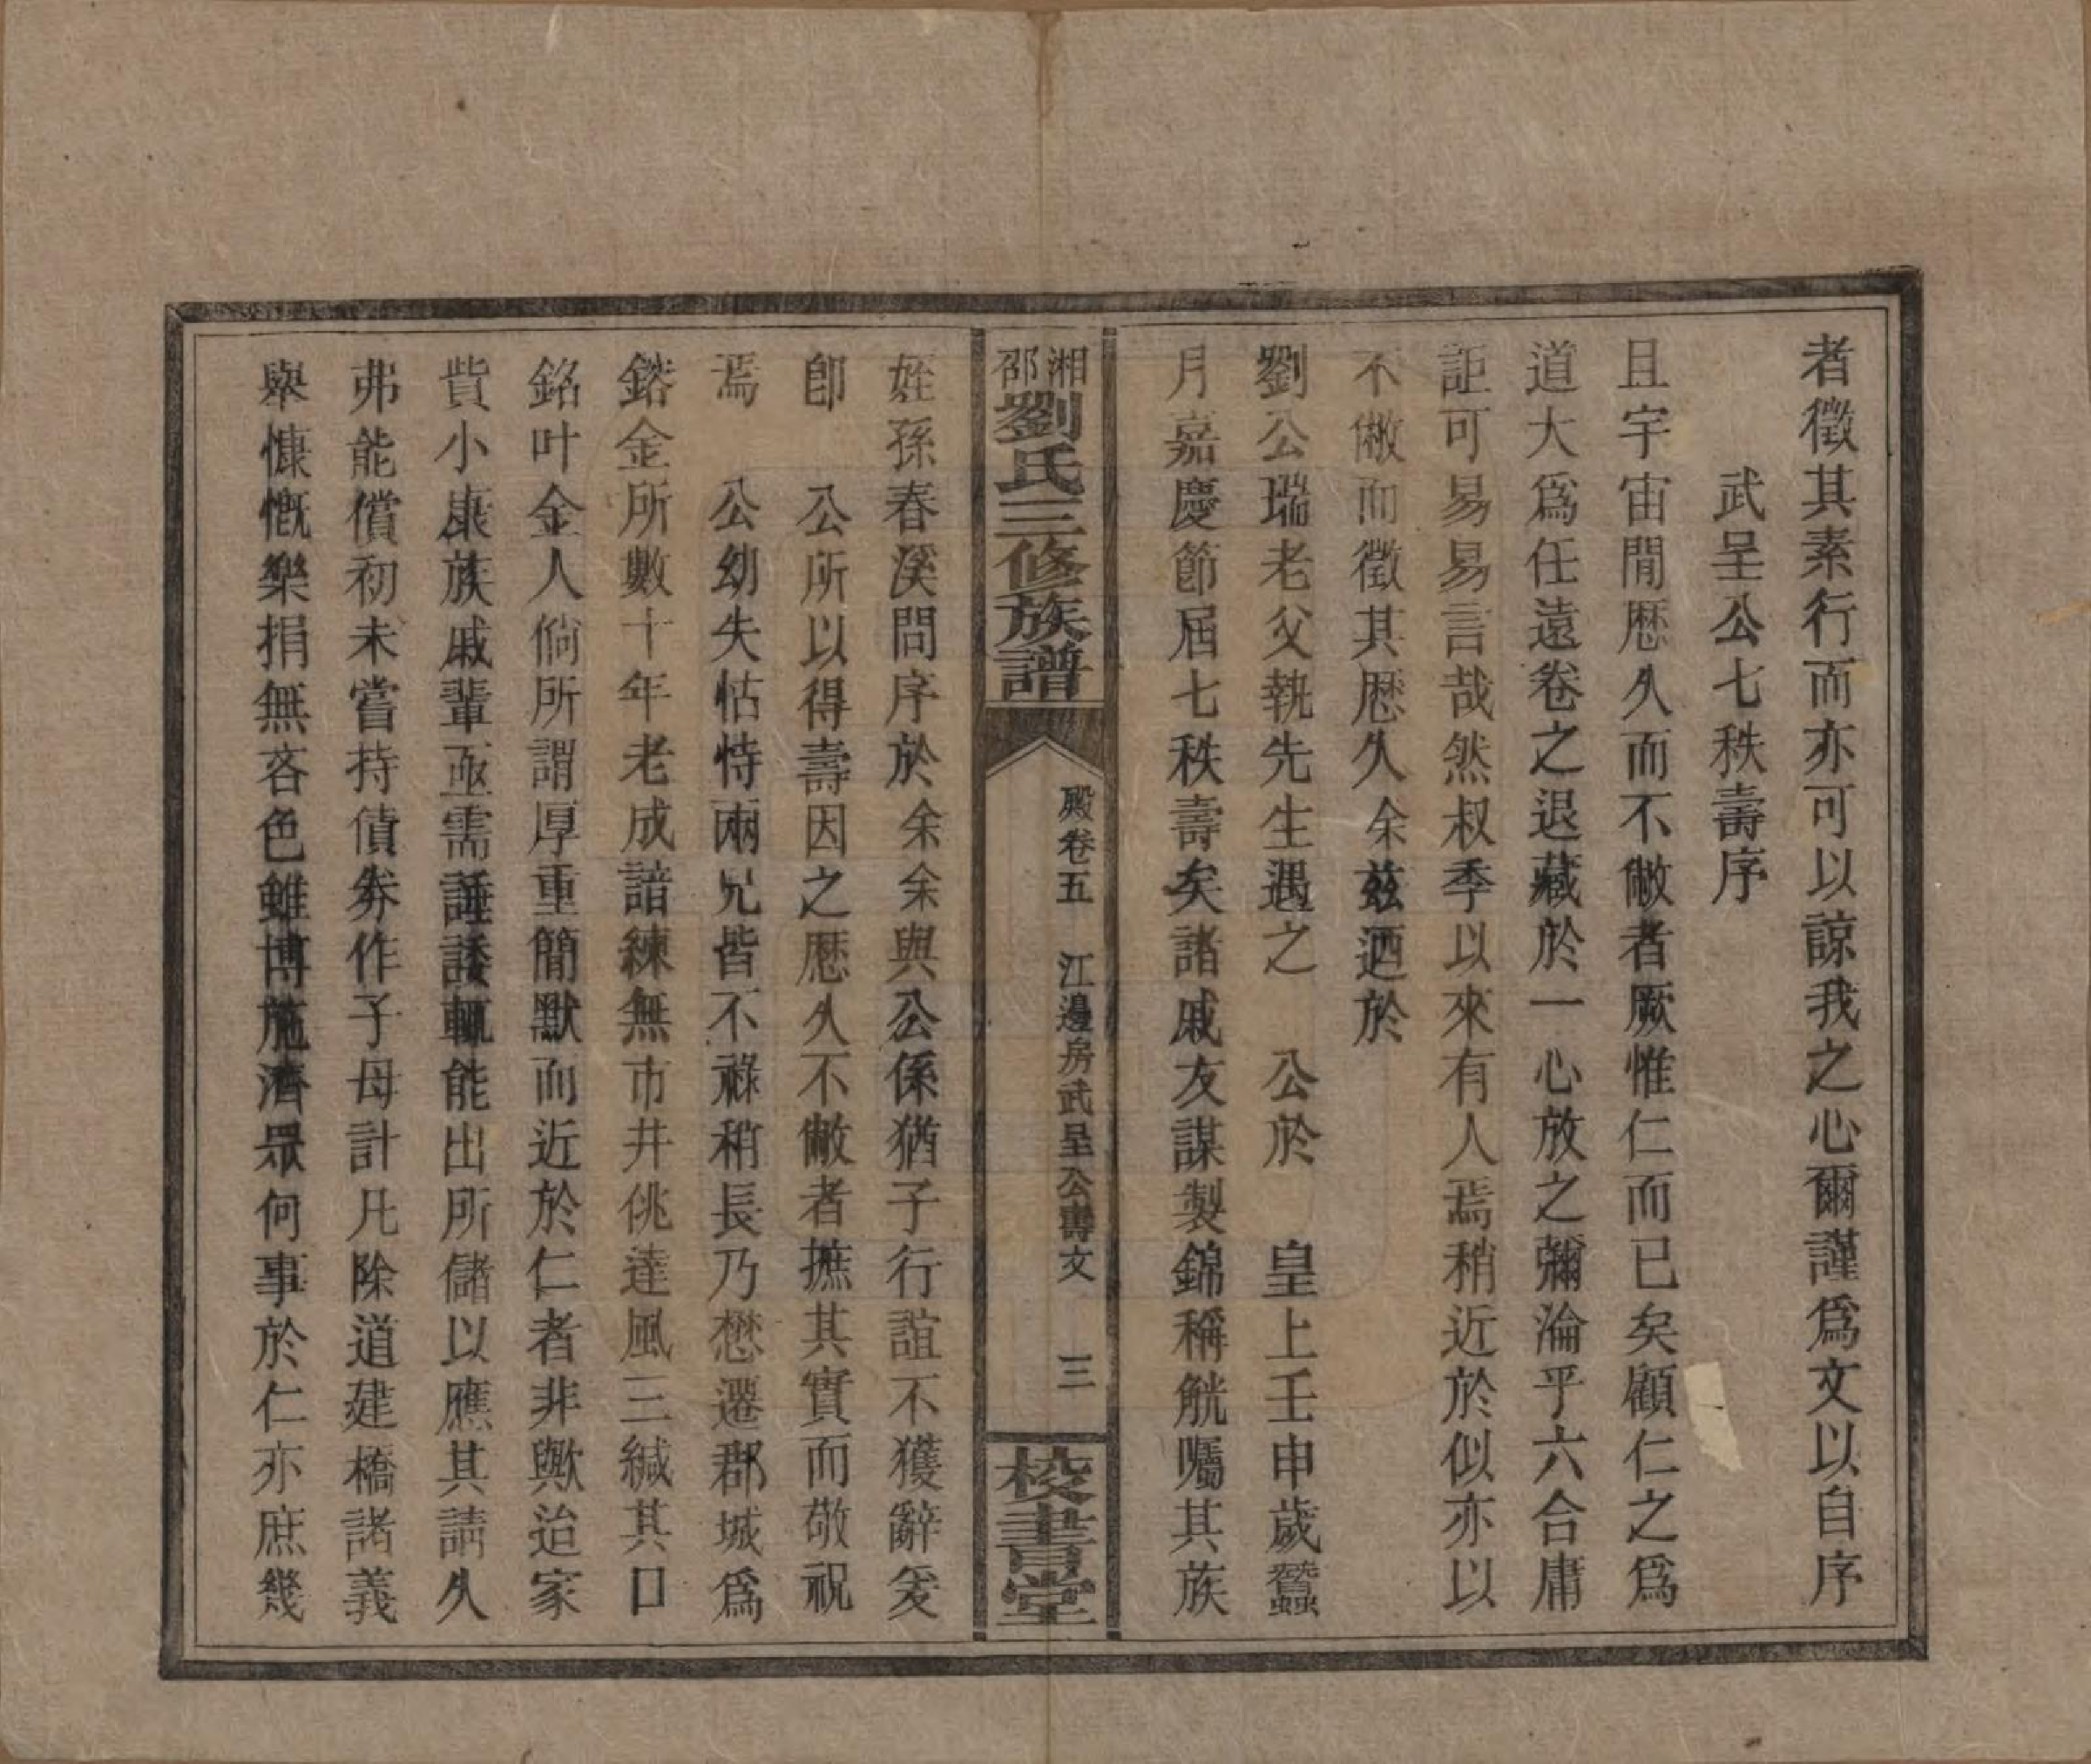 者徵其素行而亦可以諒我之心爾謹爲文以自序
武呈公七秩壽序
且宇宙閒歴久而不敝者厥惟仁而已矣顧仁之爲
道大爲任遠卷之退藏於一心放之彌淪乎六合庸
詎可易易言哉然叔季以來有人焉稍近於似亦以
不敝而徵其歴久余茲迺於
劉公瑞老父執先生遇之　公於　皇上壬申歲蠶
月嘉慶節屆七秩壽矣諸戚友謀製錦稱觥囑其族
湘邵劉氏三修族譜
殿卷五　江邊房武呈公壽文　三
校書堂
姪孫春溪問序於余余與公係猶子行誼不獲辭爰
卽　公所以得壽因之歴久不敝者摭其實而敬祝
焉　公幼失怙恃兩兄皆不祿稍長乃懋遷郡城爲
鎔金所數十年老成諳練無市井佻達風三緘其口
銘叶金人倘所謂厚重簡默而近於仁者非歟迨家
貲小康族戚輩亟需諈諉輒能出所儲以應其請久
弗能償初未嘗持債券作子母計凡除道建橋諸義
舉慷慨樂捐無吝色雖博施濟眾何事於仁亦庶幾